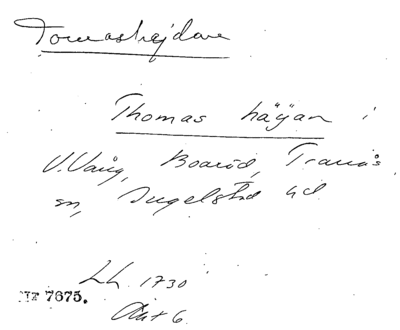 Tomashajdare
Thomas häÿan i
V. Vång, Boaröd, Tranås
sn, Ingelstad hd
LL. 1730
Nr 7675.
Akt 6